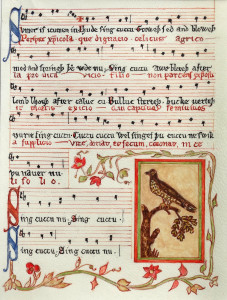 Sumer is icumen in Lhude sing cucu Groweþ sed and bloweþ
Perspice xpicola que dignacio celicus agrico
med and springþ þe wde nu. Sing cuccu Awe bleteþ after
la pro vicio Filio non parcens
lomb lhouþ after calue cu Bulluc sterteþ bucke uerteþ
captiuos semiuiuos
murie sing cuccu Cuccu cuccu Wel singes þu cuccu ne swik
a supplicio Vite donat et secum coronat in ce
þu nauer nu
li solio
Sing cuccu nu. Sing cuccu.
Sing cuccu. Sing cuccu nu.